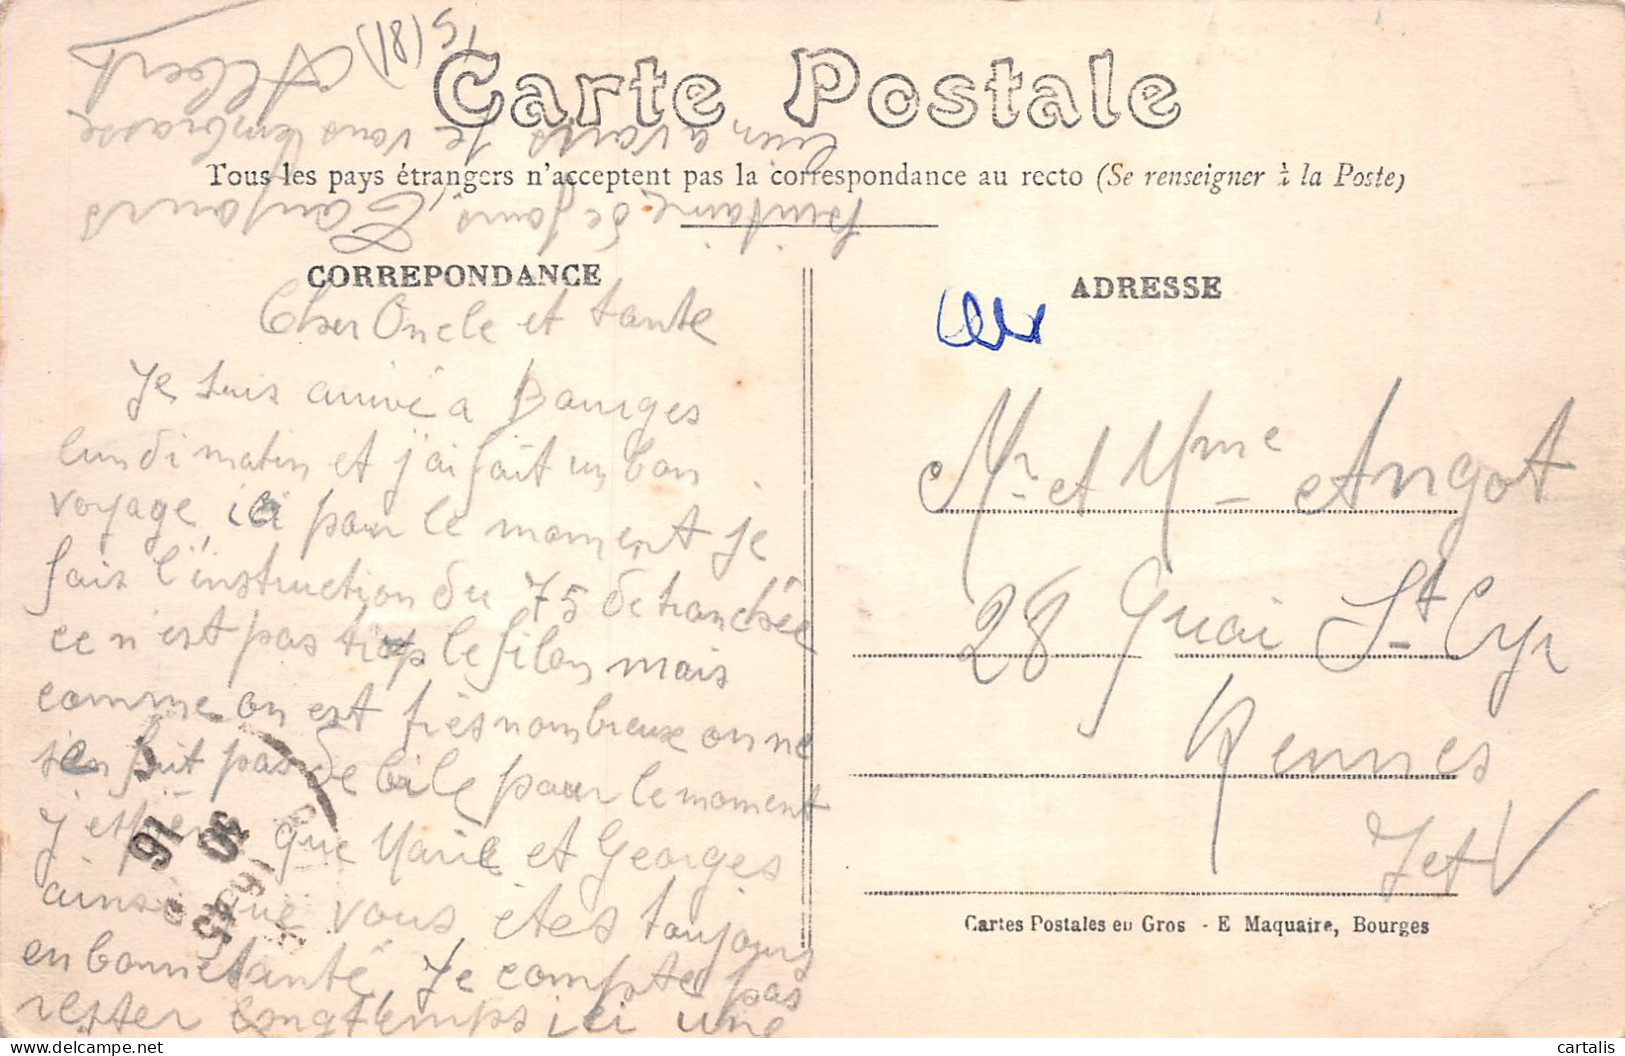 Carte Postale
Tous les pays étrangers n'acceptent pas la correspondance au recto (Se renseigner à la Poste)
CORREPONDANCE
Cher Oncle et tante
Je suis arrivé a Bourges
lundi matin et j'ai fait un bon
voyage, ici pour le moment je
fais l'instruction du 75 de tranchée
ce n'est pas trop le filon mais
comme on est très nombreux on ne
s'en fait pas de bile pour le moment
j'espère que Marie et Georges
ainsi que vous êtes toujours
en bonne santé, Je compte pas
rester longtemps ici une
quinzaine de jours. Toujours
bien a vous je vous embrasse
Albert
ADRESSE
Mr et Mme Angot
28 Quai St Cyr
Rennes
I et V
16
30
45
Cartes Postales en Gros - E Maquaire, Bourges
cartalis
delcampe.net